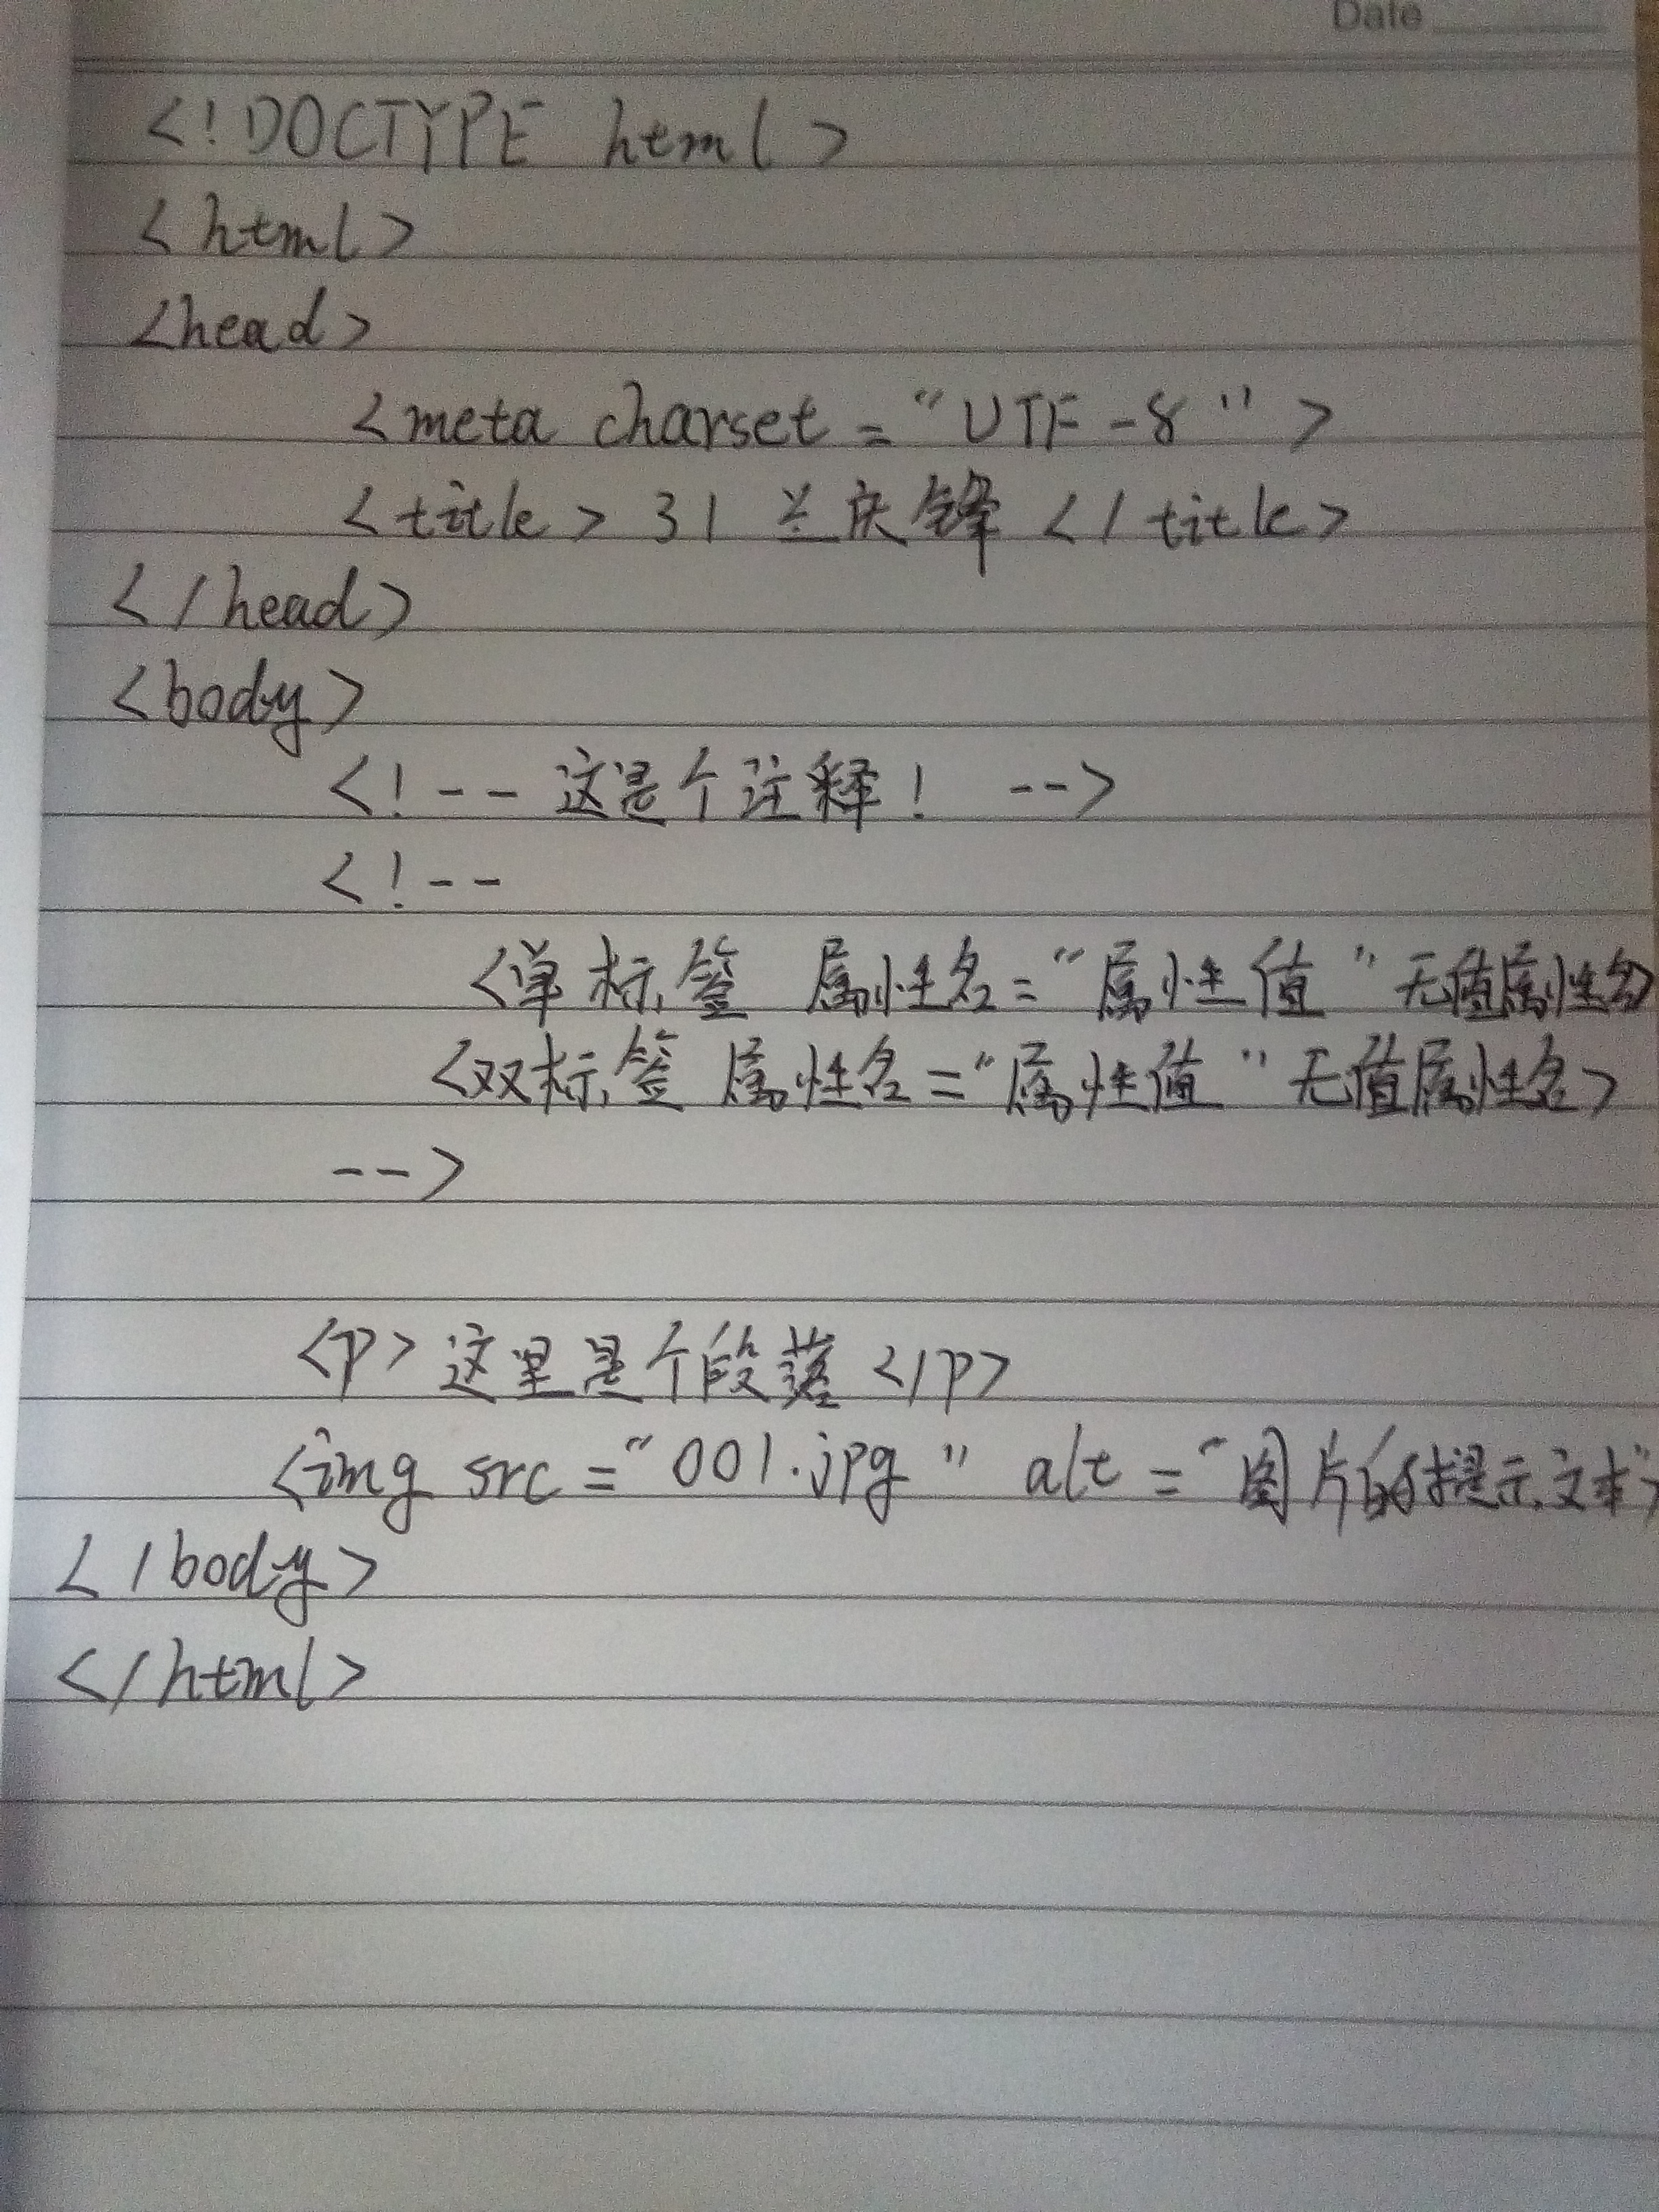 Date
<!DOCTYPE html>
<html>
<head>
<meta charset="UTF-8">
<title>31 兰庆锋</title>
</head>
<body>
<!--这是个注释! -->
<!--
<单标签 属性名="属性值"无值属性名
<双标签 属性名="属性值"无值属性名>
-->
<p>这里是个段落</p>
<img src="001.jpg" alt="图片的提示文本">
</body>
</html>